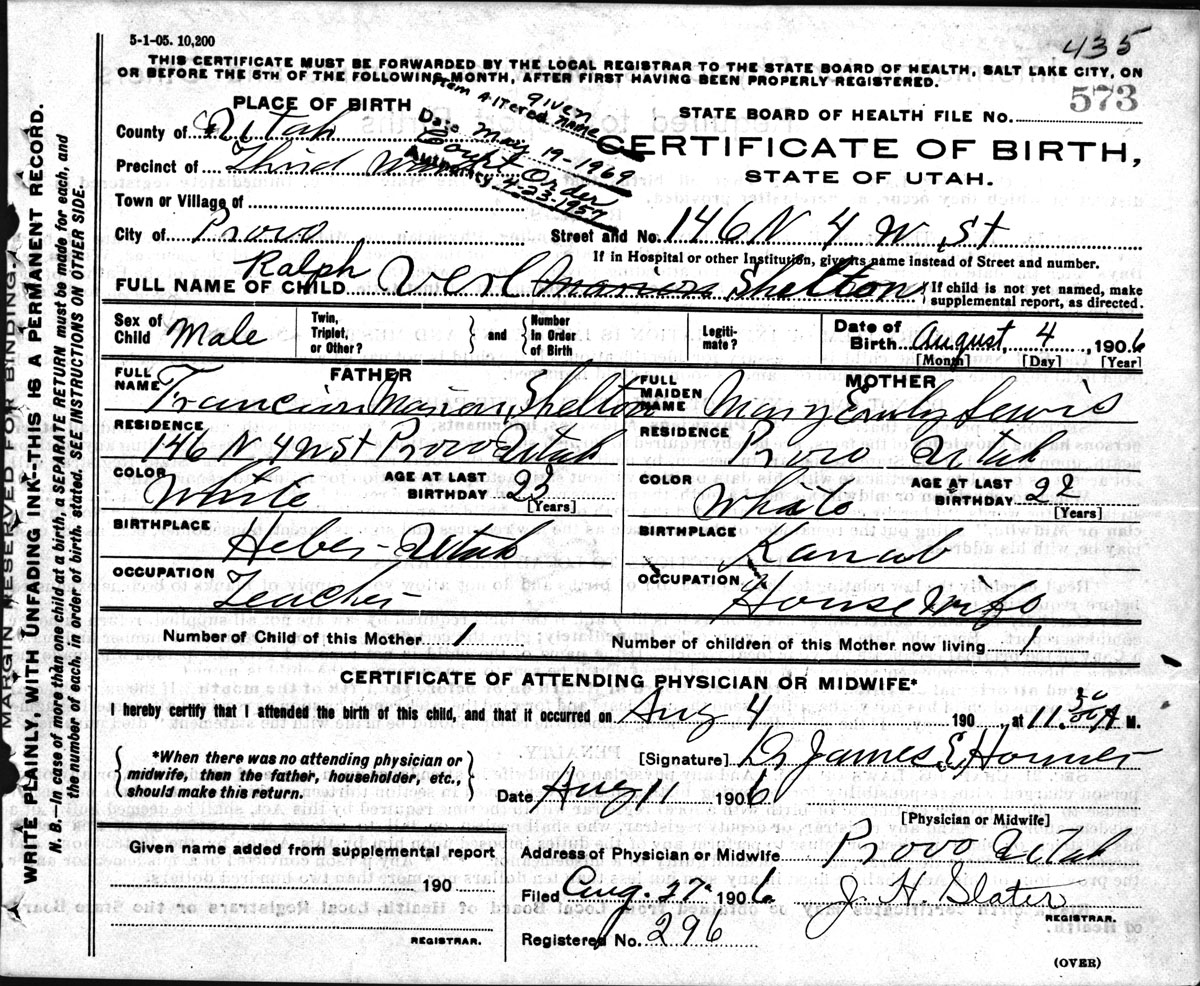 5-1-05. 10,200
435
THIS CERTIFICATE MUST BE FORWARDED BY THE LOCAL REGISTRAR TO THE STATE BOARD OF HEALTH, SALT LAKE CITY, ON
OR BEFORE THE 5TH OF THE FOLLOWING MONTH, AFTER FIRST HAVING BEEN PROPERLY REGISTERED.
573
given
Item Altered name
Date May 19-1969
Court Order
Authority 4-23-1957
PLACE OF BIRTH
STATE BOARD OF HEALTH FILE NO.
County of Utah
CERTIFICATE OF BIRTH,
Precinct of Third Ward
STATE OF UTAH.
Town or Village of
City of Provo Street and No. 146 N 4 W St
If in Hospital or other Institution, give its name instead of Street and number.
Ralph
FULL NAME OF CHILD Verl Marion Shelton
If child is not yet named, make
supplemental report, as directed.
Sex of Child Male
Twin, Triplet, or Other?
and
Number In Order of Birth
Legiti- mate?
Date of Birth August 4, 1906
[Month] [Day] [Year]
FATHER
MOTHER
FULL NAME Marion Shelton
FULL MAIDEN NAME Mary Emily Lewis
RESIDENCE 146 N 4 W St Provo Utah
RESIDENCE Provo Utah
COLOR White AGE AT LAST BIRTHDAY 23 [Years]
COLOR White AGE AT LAST BIRTHDAY 22 [Years]
BIRTHPLACE Heber - Utah
BIRTHPLACE Kanab
OCCUPATION Teacher
OCCUPATION House Wife
Number of Child of this Mother
Number of children of this Mother now living 1
CERTIFICATE OF ATTENDING PHYSICIAN OR MIDWIFE*
I hereby certify that I attended the birth of this child, and that it occurred on Aug 4 190 , at 11.30 A M.
*When there was no attending physician or
midwife, then the father, householder, etc.,
should make this return.
[Signature] Dr James E
Date Aug 11 1906
[Physician or Midwife]
Given name added from supplemental report
190
REGISTRAR.
Address of Physician or Midwife Provo Utah
Filed Aug 27 1906 J. H. Slater
REGISTRAR.
Registered No. 296
(OVER)
MARGIN RESERVED FOR BINDING.
WRITE PLAINLY, WITH UNFADING INK--THIS IS A PERMANENT RECORD.
N. B.—In case of more than one child at a birth, a SEPARATE RETURN must be made for each, and
the number of each, in order of birth, stated. SEE INSTRUCTIONS ON OTHER SIDE.